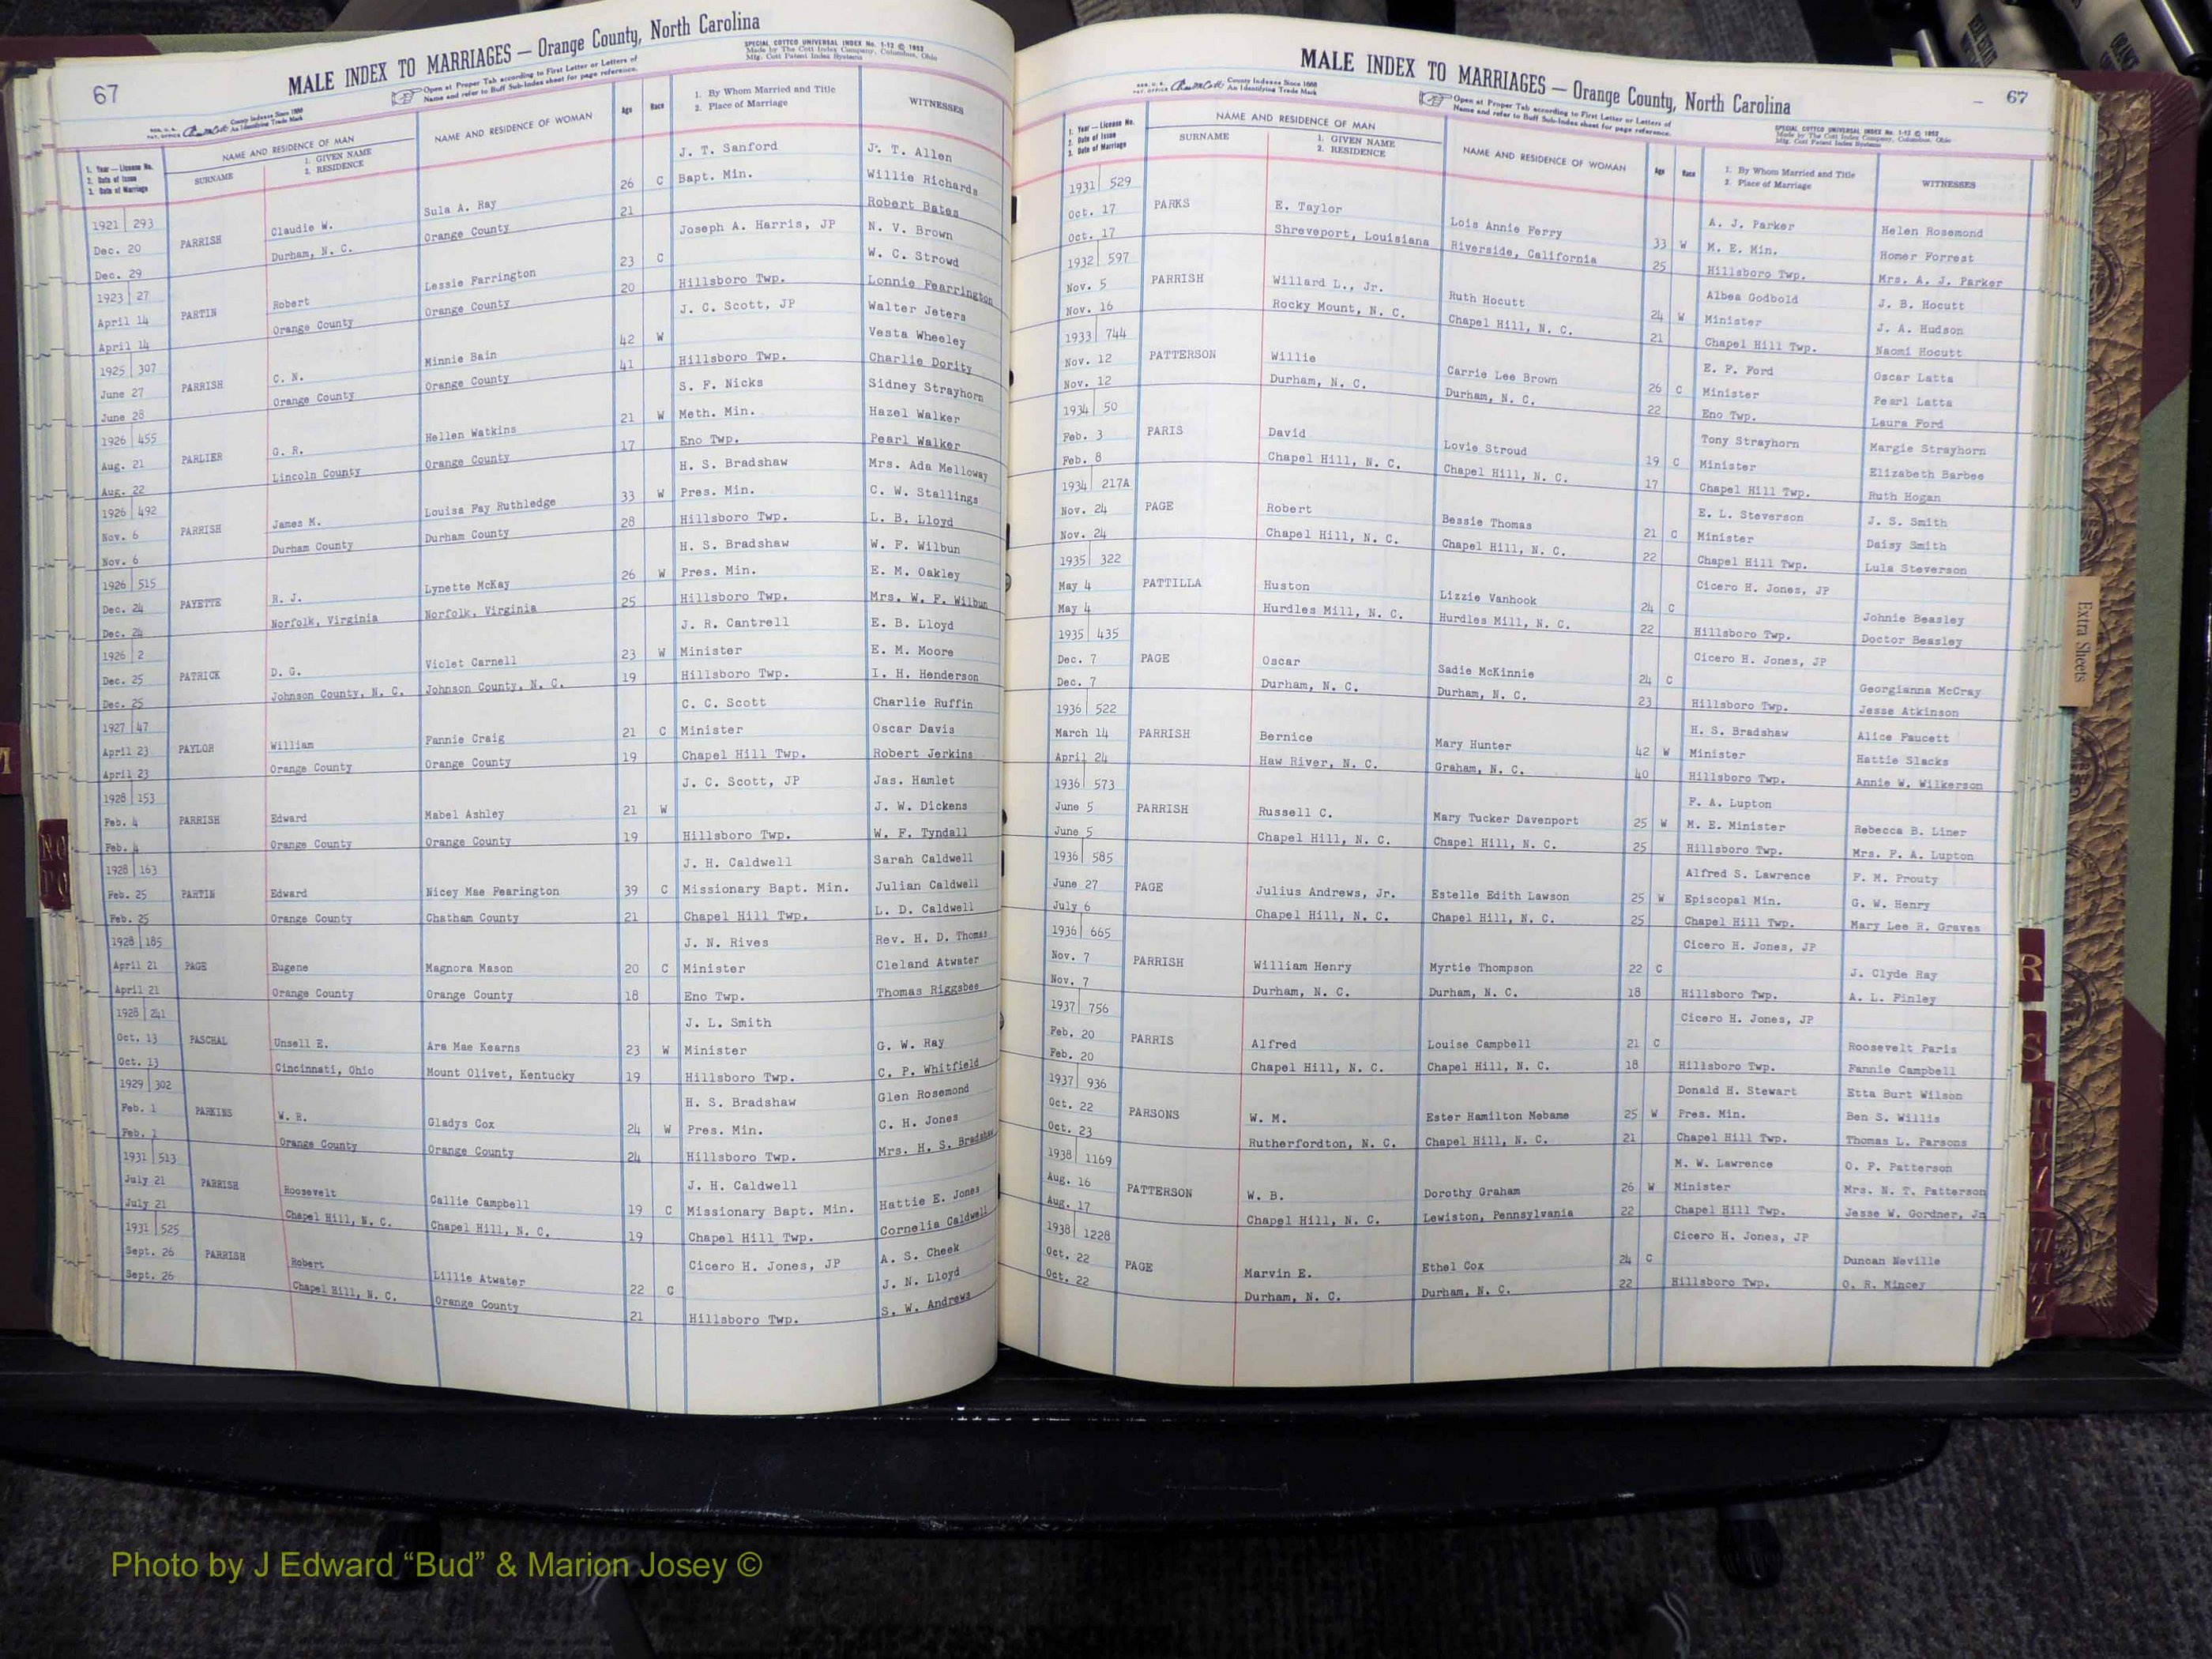 67
MALE INDEX TO MARRIAGES — Orange County, North Carolina
SPECIAL COTTCO UNIVERSAL INDEX No. 1-12 © 1952
Made by The Cott Index Company, Columbus, Ohio
Mfg. Cott Patent Index Systems
Open at Proper Tab according to First Letter or Letters of
Name and refer to Buff Sub-Index sheet for page reference.
County Indexes Since 1888
An Identifying Trade Mark
1. Year — License No.
2. Date of Issue
3. Date of Marriage
NAME AND RESIDENCE OF MAN
SURNAME
1. GIVEN NAME
2. RESIDENCE
NAME AND RESIDENCE OF WOMAN
Age
Race
1. By Whom Married and Title
2. Place of Marriage
WITNESSES
1921 293 Dec. 20 Dec. 29 PARRISH Claudie W. Durham, N. C. Sula A. Ray Orange County 26 21 C J. T. Sanford Bapt. Min. J. T. Allen Willie Richards Robert Bates
1923 27 April 14 April 14 PARTIN Robert Orange County Lessie Farrington Orange County 23 20 C Joseph A. Harris, JP Hillsboro Twp. N. V. Brown W. C. Strowd Lonnie Fearrington
1925 307 June 27 June 28 PARRISH C. N. Orange County Minnie Bain Orange County 42 41 W J. C. Scott, JP Hillsboro Twp. Walter Jeters Vesta Wheeley Charlie Dority
1926 455 Aug. 21 Aug. 22 PARLIER G. R. Lincoln County Hellen Watkins Orange County 21 17 W S. F. Nicks Meth. Min. Eno Twp. Sidney Strayhorn Hazel Walker Pearl Walker
1926 492 Nov. 6 Nov. 6 PARRISH James M. Durham County Louisa Fay Ruthledge Durham County 33 28 W H. S. Bradshaw Pres. Min. Hillsboro Twp. Mrs. Ada Melloway C. W. Stallings L. B. Lloyd
1926 515 Dec. 24 Dec. 24 PAYETTE R. J. Norfolk, Virginia Lynette McKay Norfolk, Virginia 26 25 W H. S. Bradshaw Pres. Min. Hillsboro Twp. W. F. Wilbun E. M. Oakley Mrs. W. F. Wilbun
1926 2 Dec. 25 Dec. 25 PATRICK D. G. Johnson County, N. C. Violet Carnell Johnson County, N. C. 23 19 W J. R. Cantrell Minister Hillsboro Twp. E. B. Lloyd E. M. Moore I. H. Henderson
1927 47 April 23 April 23 PAYLOR William Orange County Fannie Craig Orange County 21 19 C C. C. Scott Minister Chapel Hill Twp. Charlie Ruffin Oscar Davis Robert Jerkins
1928 153 Feb. 4 Feb. 4 PARRISH Edward Orange County Mabel Ashley Orange County 21 19 W J. C. Scott, JP Hillsboro Twp. Jas. Hamlet J. W. Dickens W. F. Tyndall
1928 163 Feb. 25 Feb. 25 PARTIN Edward Orange County Nicey Mae Fearington Chatham County 39 21 C J. H. Caldwell Missionary Bapt. Min. Chapel Hill Twp. Sarah Caldwell Julian Caldwell L. D. Caldwell
1928 185 April 21 April 21 PAGE Eugene Orange County Magnora Mason Orange County 20 18 C J. N. Rives Minister Eno Twp. Rev. H. D. Thomas Cleland Atwater Thomas Riggsbee
1928 241 Oct. 13 Oct. 13 PASCHAL Unsell E. Cincinnati, Ohio Ara Mae Kearns Mount Olivet, Kentucky 23 19 W J. L. Smith Minister Hillsboro Twp. G. W. Ray C. P. Whitfield
1929 302 Feb. 1 Feb. 1 PARKINS W. R. Orange County Gladys Cox Orange County 24 24 W H. S. Bradshaw Pres. Min. Hillsboro Twp. Glen Rosemond C. H. Jones Mrs. H. S. Bradshaw
1931 513 July 21 July 21 PARRISH Roosevelt Chapel Hill, N. C. Callie Campbell Chapel Hill, N. C. 19 19 C J. H. Caldwell Missionary Bapt. Min. Chapel Hill Twp. Hattie E. Jones Cornelia Caldwell
1931 525 Sept. 26 Sept. 26 PARRISH Robert Chapel Hill, N. C. Lillie Atwater Orange County 22 21 C Cicero H. Jones, JP Hillsboro Twp. A. S. Cheek J. N. Lloyd S. W. Andrews
MALE INDEX TO MARRIAGES — Orange County, North Carolina
67
County Indexes Since 1888
An Identifying Trade Mark
Open at Proper Tab according to First Letter or Letters of
Name and refer to Buff Sub-Index sheet for page reference.
SPECIAL COTTCO UNIVERSAL INDEX No. 1-12 © 1952
Made by The Cott Index Company, Columbus, Ohio
Mfg. Cott Patent Index Systems
1. Year — License No.
2. Date of Issue
3. Date of Marriage
NAME AND RESIDENCE OF MAN
SURNAME
1. GIVEN NAME
2. RESIDENCE
NAME AND RESIDENCE OF WOMAN
Age
Race
1. By Whom Married and Title
2. Place of Marriage
WITNESSES
1931 529 Oct. 17 Oct. 17 PARKS E. Taylor Shreveport, Louisiana Lois Annie Ferry Riverside, California 33 25 W A. J. Parker M. E. Min. Hillsboro Twp. Helen Rosemond Homer Forrest Mrs. A. J. Parker
1932 597 Nov. 5 Nov. 16 PARRISH Willard L., Jr. Rocky Mount, N. C. Ruth Hocutt Chapel Hill, N. C. 24 21 W Albea Godbold Minister Chapel Hill Twp. J. B. Hocutt J. A. Hudson Naomi Hocutt
1933 744 Nov. 12 Nov. 12 PATTERSON Willie Durham, N. C. Carrie Lee Brown Durham, N. C. 26 22 C E. F. Ford Minister Eno Twp. Oscar Latta Pearl Latta Laura Ford
1934 50 Feb. 3 Feb. 8 PARIS David Chapel Hill, N. C. Lovie Stroud Chapel Hill, N. C. 19 17 C Tony Strayhorn Minister Chapel Hill Twp. Margie Strayhorn Elizabeth Barbee Ruth Hogan
1934 217A Nov. 24 Nov. 24 PAGE Robert Chapel Hill, N. C. Bessie Thomas Chapel Hill, N. C. 21 22 C E. L. Steverson Minister Chapel Hill Twp. J. S. Smith Daisy Smith Lula Steverson
1935 322 May 4 May 4 PATTILLA Huston Hurdles Mill, N. C. Lizzie Vanhook Hurdles Mill, N. C. 24 22 C Cicero H. Jones, JP Hillsboro Twp. Johnie Beasley Doctor Beasley
1935 435 Dec. 7 Dec. 7 PAGE Oscar Durham, N. C. Sadie McKinnie Durham, N. C. 24 23 C Cicero H. Jones, JP Hillsboro Twp. Georgianna McCray Jesse Atkinson
1936 522 March 14 April 24 PARRISH Bernice Haw River, N. C. Mary Hunter Graham, N. C. 42 40 W H. S. Bradshaw Minister Hillsboro Twp. Alice Faucett Hattie Slacks Annie W. Wilkerson
1936 573 June 5 June 5 PARRISH Russell C. Chapel Hill, N. C. Mary Tucker Davenport Chapel Hill, N. C. 25 25 W F. A. Lupton M. E. Minister Hillsboro Twp. Rebecca B. Liner Mrs. F. A. Lupton
1936 585 June 27 July 6 PAGE Julius Andrews, Jr. Chapel Hill, N. C. Estelle Edith Lawson Chapel Hill, N. C. 25 25 W Alfred S. Lawrence Episcopal Min. Chapel Hill Twp. F. M. Prouty G. W. Henry Mary Lee R. Graves
1936 665 Nov. 7 Nov. 7 PARRISH William Henry Durham, N. C. Myrtie Thompson Durham, N. C. 22 18 C Cicero H. Jones, JP Hillsboro Twp. J. Clyde Ray A. L. Finley
1937 756 Feb. 20 Feb. 20 PARRIS Alfred Chapel Hill, N. C. Louise Campbell Chapel Hill, N. C. 21 18 C Cicero H. Jones, JP Hillsboro Twp. Roosevelt Paris Fannie Campbell
1937 936 Oct. 22 Oct. 23 PARSONS W. M. Rutherfordton, N. C. Ester Hamilton Mebame Chapel Hill, N. C. 25 21 W Donald H. Stewart Pres. Min. Chapel Hill Twp. Etta Burt Wilson Ben S. Willis Thomas L. Parsons
1938 1169 Aug. 16 Aug. 17 PATTERSON W. B. Chapel Hill, N. C. Dorothy Graham Lewiston, Pennsylvania 26 22 W M. W. Lawrence Minister Chapel Hill Twp. O. F. Patterson Mrs. N. T. Patterson Jesse W. Gordner, Jr
1938 1228 Oct. 22 Oct. 22 PAGE Marvin E. Durham, N. C. Ethel Cox Durham, N. C. 24 22 C Cicero H. Jones, JP Hillsboro Twp. Duncan Neville O. R. Mincey
Extra Sheets
R
S
T
U
Photo by J Edward “Bud” & Marion Josey ©